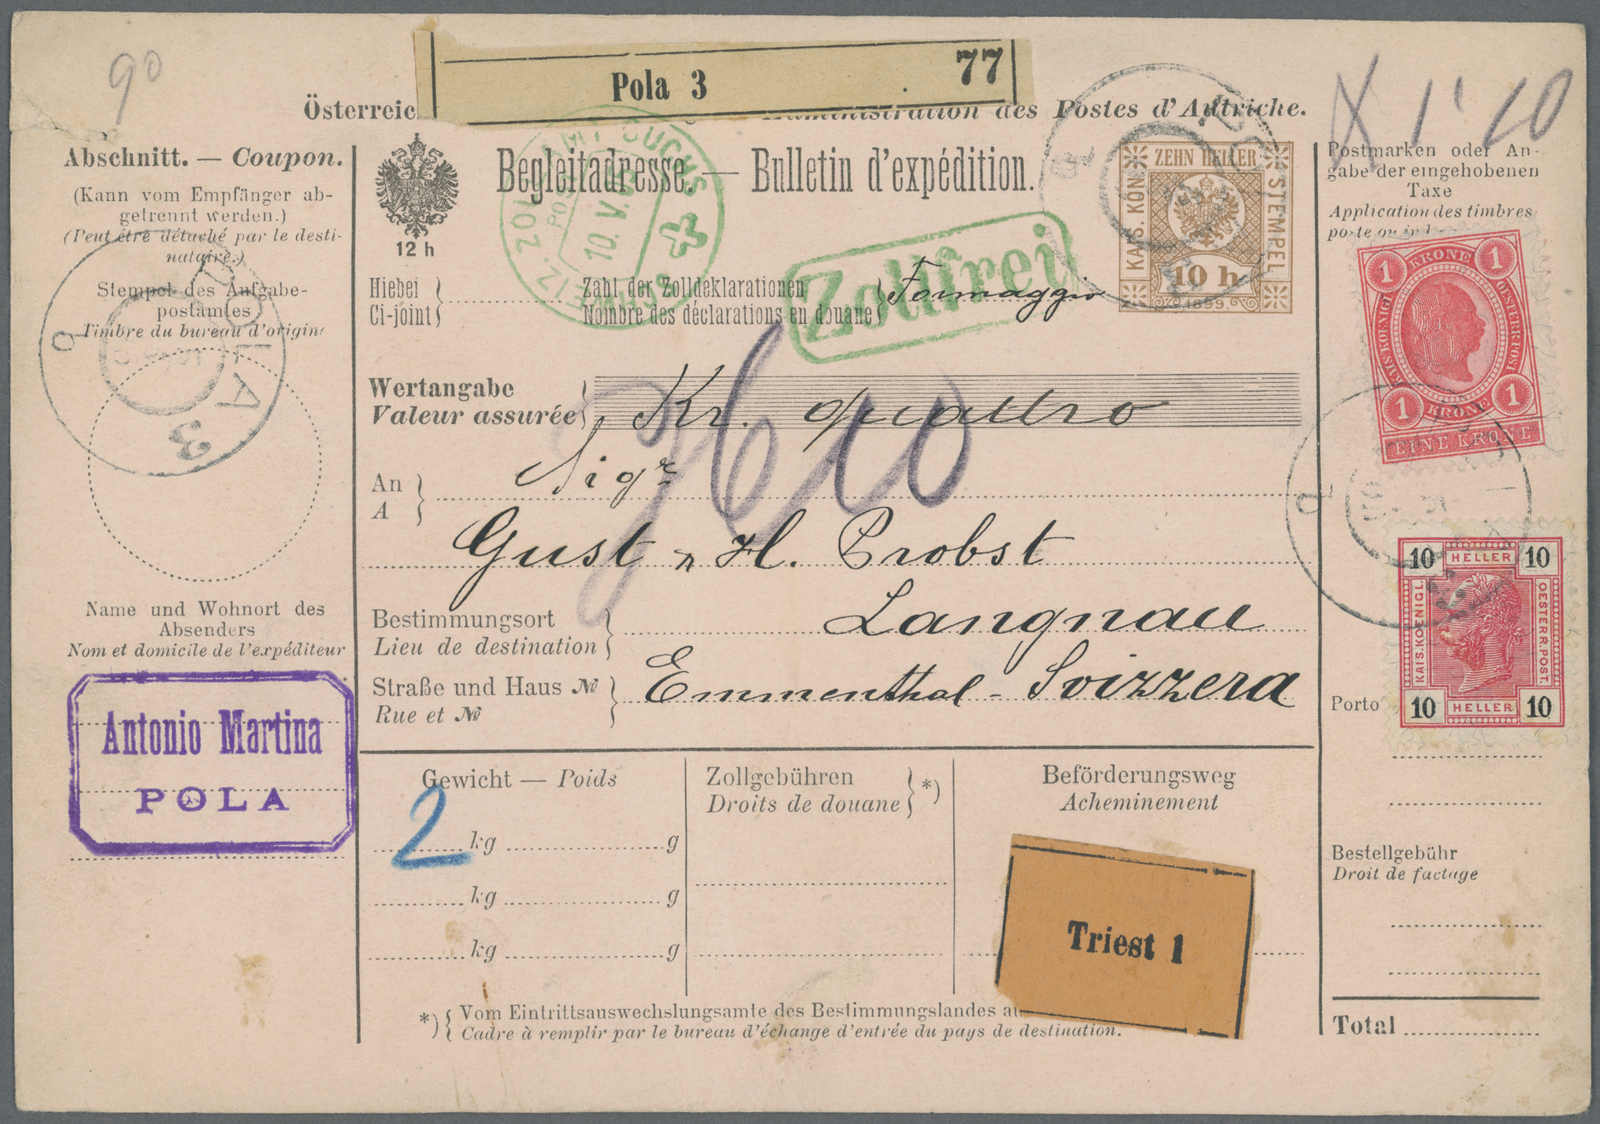 90
Pola 3
77
X 1'10
Österreic
des Postes d'Autriche.
Abschnitt. — Coupon.
(Kann vom Empfänger ab-
getrennt werden.)
(Peut être détaché par le desti-
nataire.)
Stempel des Aufgabe-
postamtes
Timbre du bureau d'origine
POLA 3
Name und Wohnort des
Absenders
Nom et domicile de l'expéditeur
Antonio Martina
POLA
12 h
Begleitadresse. — Bulletin d'expédition.
SCHWEIZ. ZOLLAMT BUCHS
10. V.
Zollfrei
KAIS. KÖN.
ZEHN HELLER
STEMPEL
10 h
1899.
Hiebei
Ci-joint
Zahl der Zolldeklarationen
Nombre des déclarations en douane
Formaggio
Wertangabe
Valeur assurée
Kr. quattro
An
A
Sigr
Gust H. Probst
Bestimmungsort
Lieu de destination
Langnau
Straße und Haus №
Rue et №
Emmenthal - Svizzera
Gewicht — Poids
2 kg g
kg g
kg g
Zollgebühren
Droits de douane *)
Beförderungsweg
Acheminement
Triest 1
*) Vom Eintrittsauswechslungsamte des Bestimmungslandes au
Cadre à remplir par le bureau d'échange d'entrée du pays de destination.
Postmarken oder An-
gabe der eingehobenen
Taxe
Application des timbres
poste ou ind
1 KRONE 1
KAIS. KOENIGL.
OESTERR. POST
1 KRONE 1
EINE KRONE
10 HELLER 10
KAIS. KOENIGL.
OESTERR. POST.
10 HELLER 10
Porto
Bestellgebühr
Droit de factage
Total